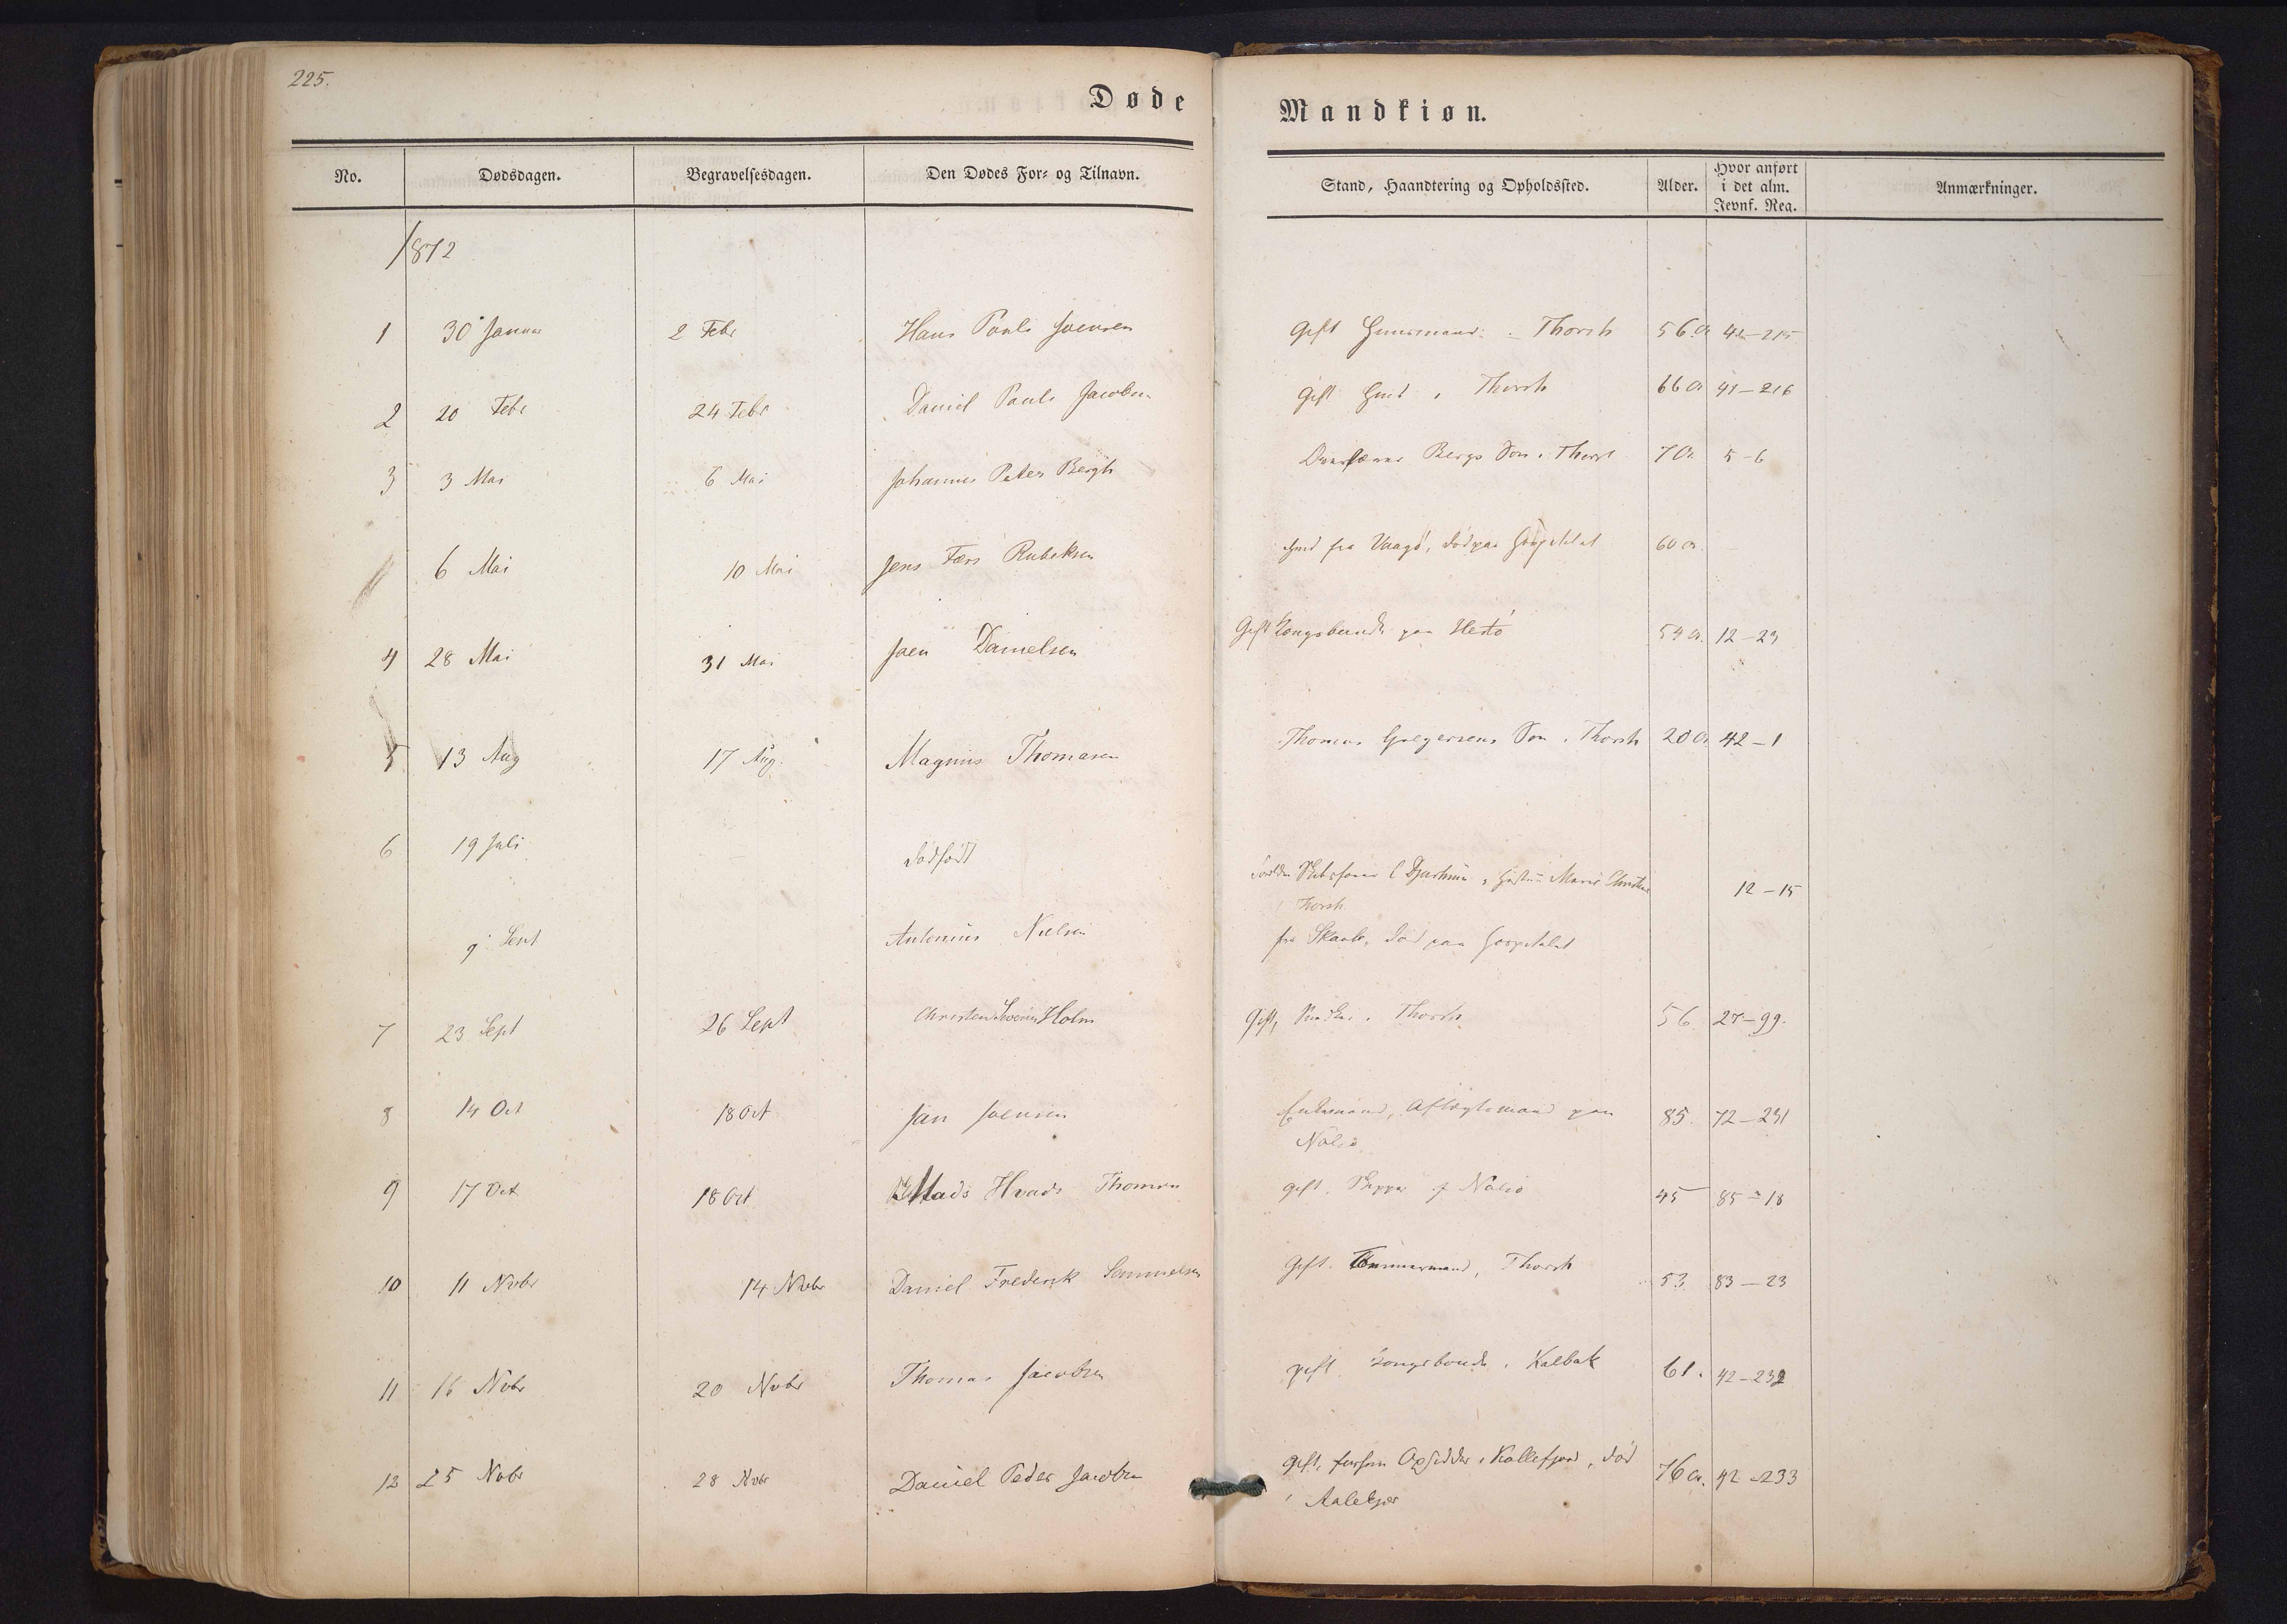 225.
Døde
Mandkiøn.
No. Dødsdagen. Begravelsesdagen. Den Dødes For- og Tilnavn. Stand, Haandtering og Opholdssted. Alder. Hvor anført i det alm. Jevnf. Reg. Anmærkninger.
1872
1 30 Januar 2 Febr Hans Pauli Joensen Gift Huusmand i Thorsh 56 a 42-215
2 20 Febr 24 Febr Daniel Pauli Jacobsen Gift Hmd i Thorsh 66 a 41-216
3 3 Mai 6 Mai Johannes Peter Bergh Bergs Søn i Thorsh 7 a. 5-6
6 Mai 10 Mai Jens Færs Rubeksen Hmd fra Vaagø, død paa Hospitalet 60 a.
4 28 Mai 31 Mai Joen Danielsen Gift Kongsbonde paa Hestø 54 a. 12-23
5 13 Aug 17 Aug. Magnus Thomasen Thomas Gregersens Søn i Thorsh 20 a. 42-1
6 19 Juli dødfødt C Djurhuus, Hustru Marie Christine 12-15
i Thorsh
9 Sept Antonius Nielsen fra Skaale, død paa Hospitalet
7 23 Sept 26 Sept Christen Severin Holm Gift, i Thorsh 56. 27-99.
8 14 Oct 18 Oct Jan Joensen Enkemand, Aftægtsmand paa 85. 72-231
Nolsø
9 17 Oct 18 Oct Mads Hvads Thomsen gift, af Nolsø 45 85-18
10 11 Novbr 14 Novbr Daniel Frederik Samuelsen Gift. Tømmermand, Thorsh 53. 83-23
11 16 Novbr 20 Novbr Thomas Jacobsen gift Kongsbonde i Kalbak 61. 42-232
12 25 Novbr 28 Novbr Daniel Peder Jacobsen Gift, forhen Opsidder i Kollefjord, død 76 a. 42-233
i